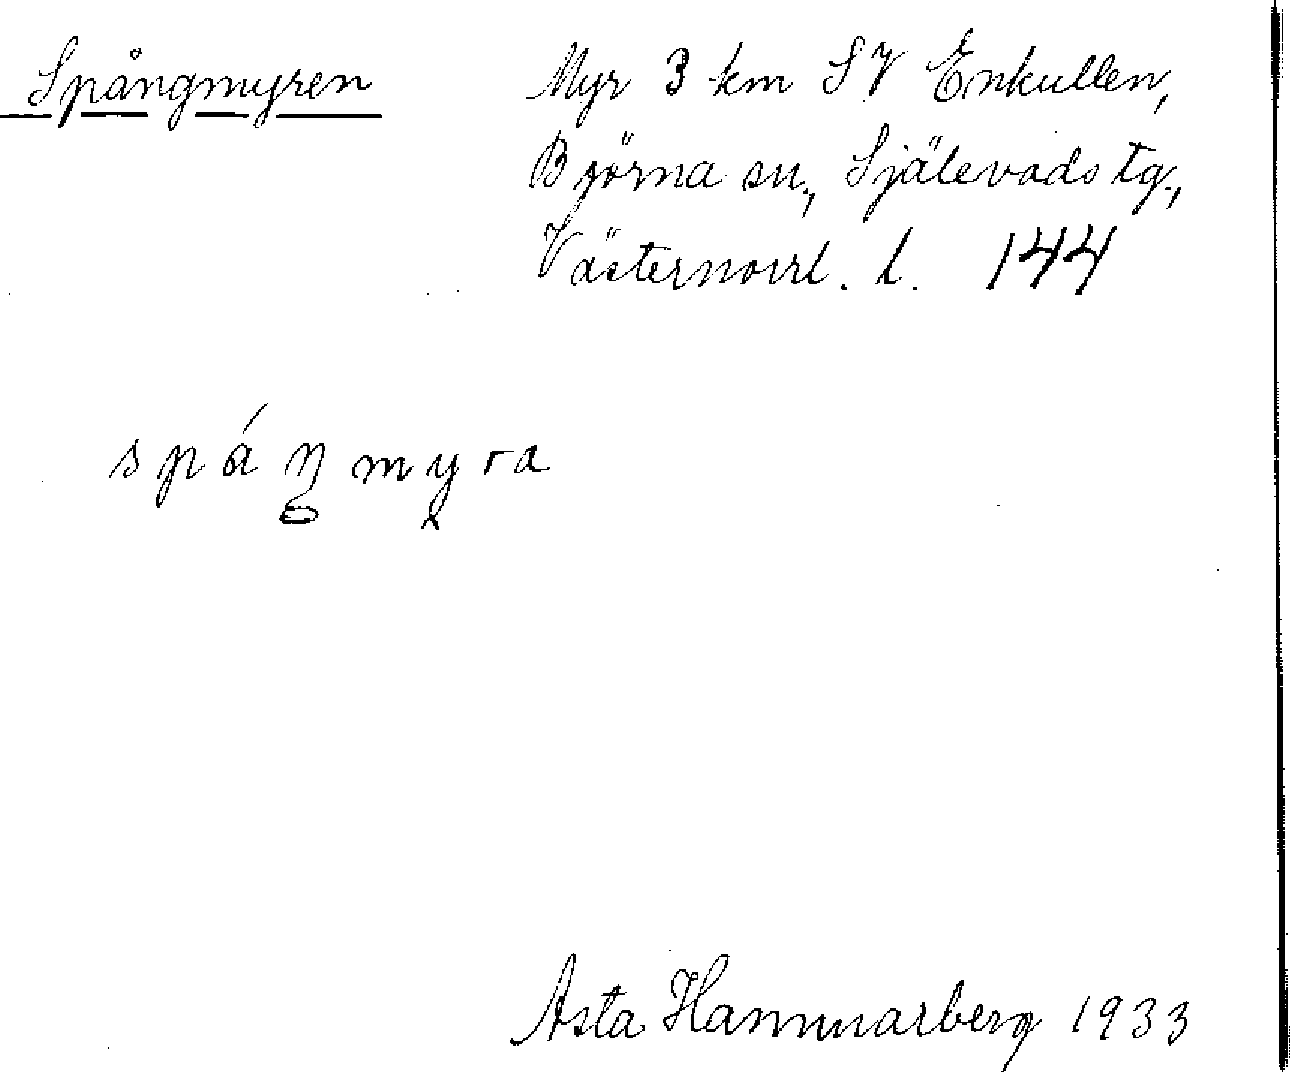 Spångmyren
Myr 3 km SV Enkullen,
Björna sn, Själevads tg.,
Västernorrl. l. 144
spáŋmyra
Asta Hammarberg 1933